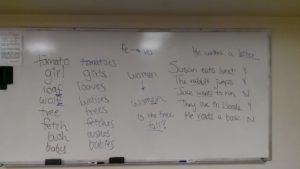 tomato tomatoes
girl girls
loaf loaves
wolf wolves
tree trees
fetch fetches
bush bushes
baby babies
fe → ves
woman
↓
women
is the tree
tall?
He writes a letter.
Susan eats lunch Y
The rabbit jumps Y
Jack wants to run N
They live in Y
He reads a book N